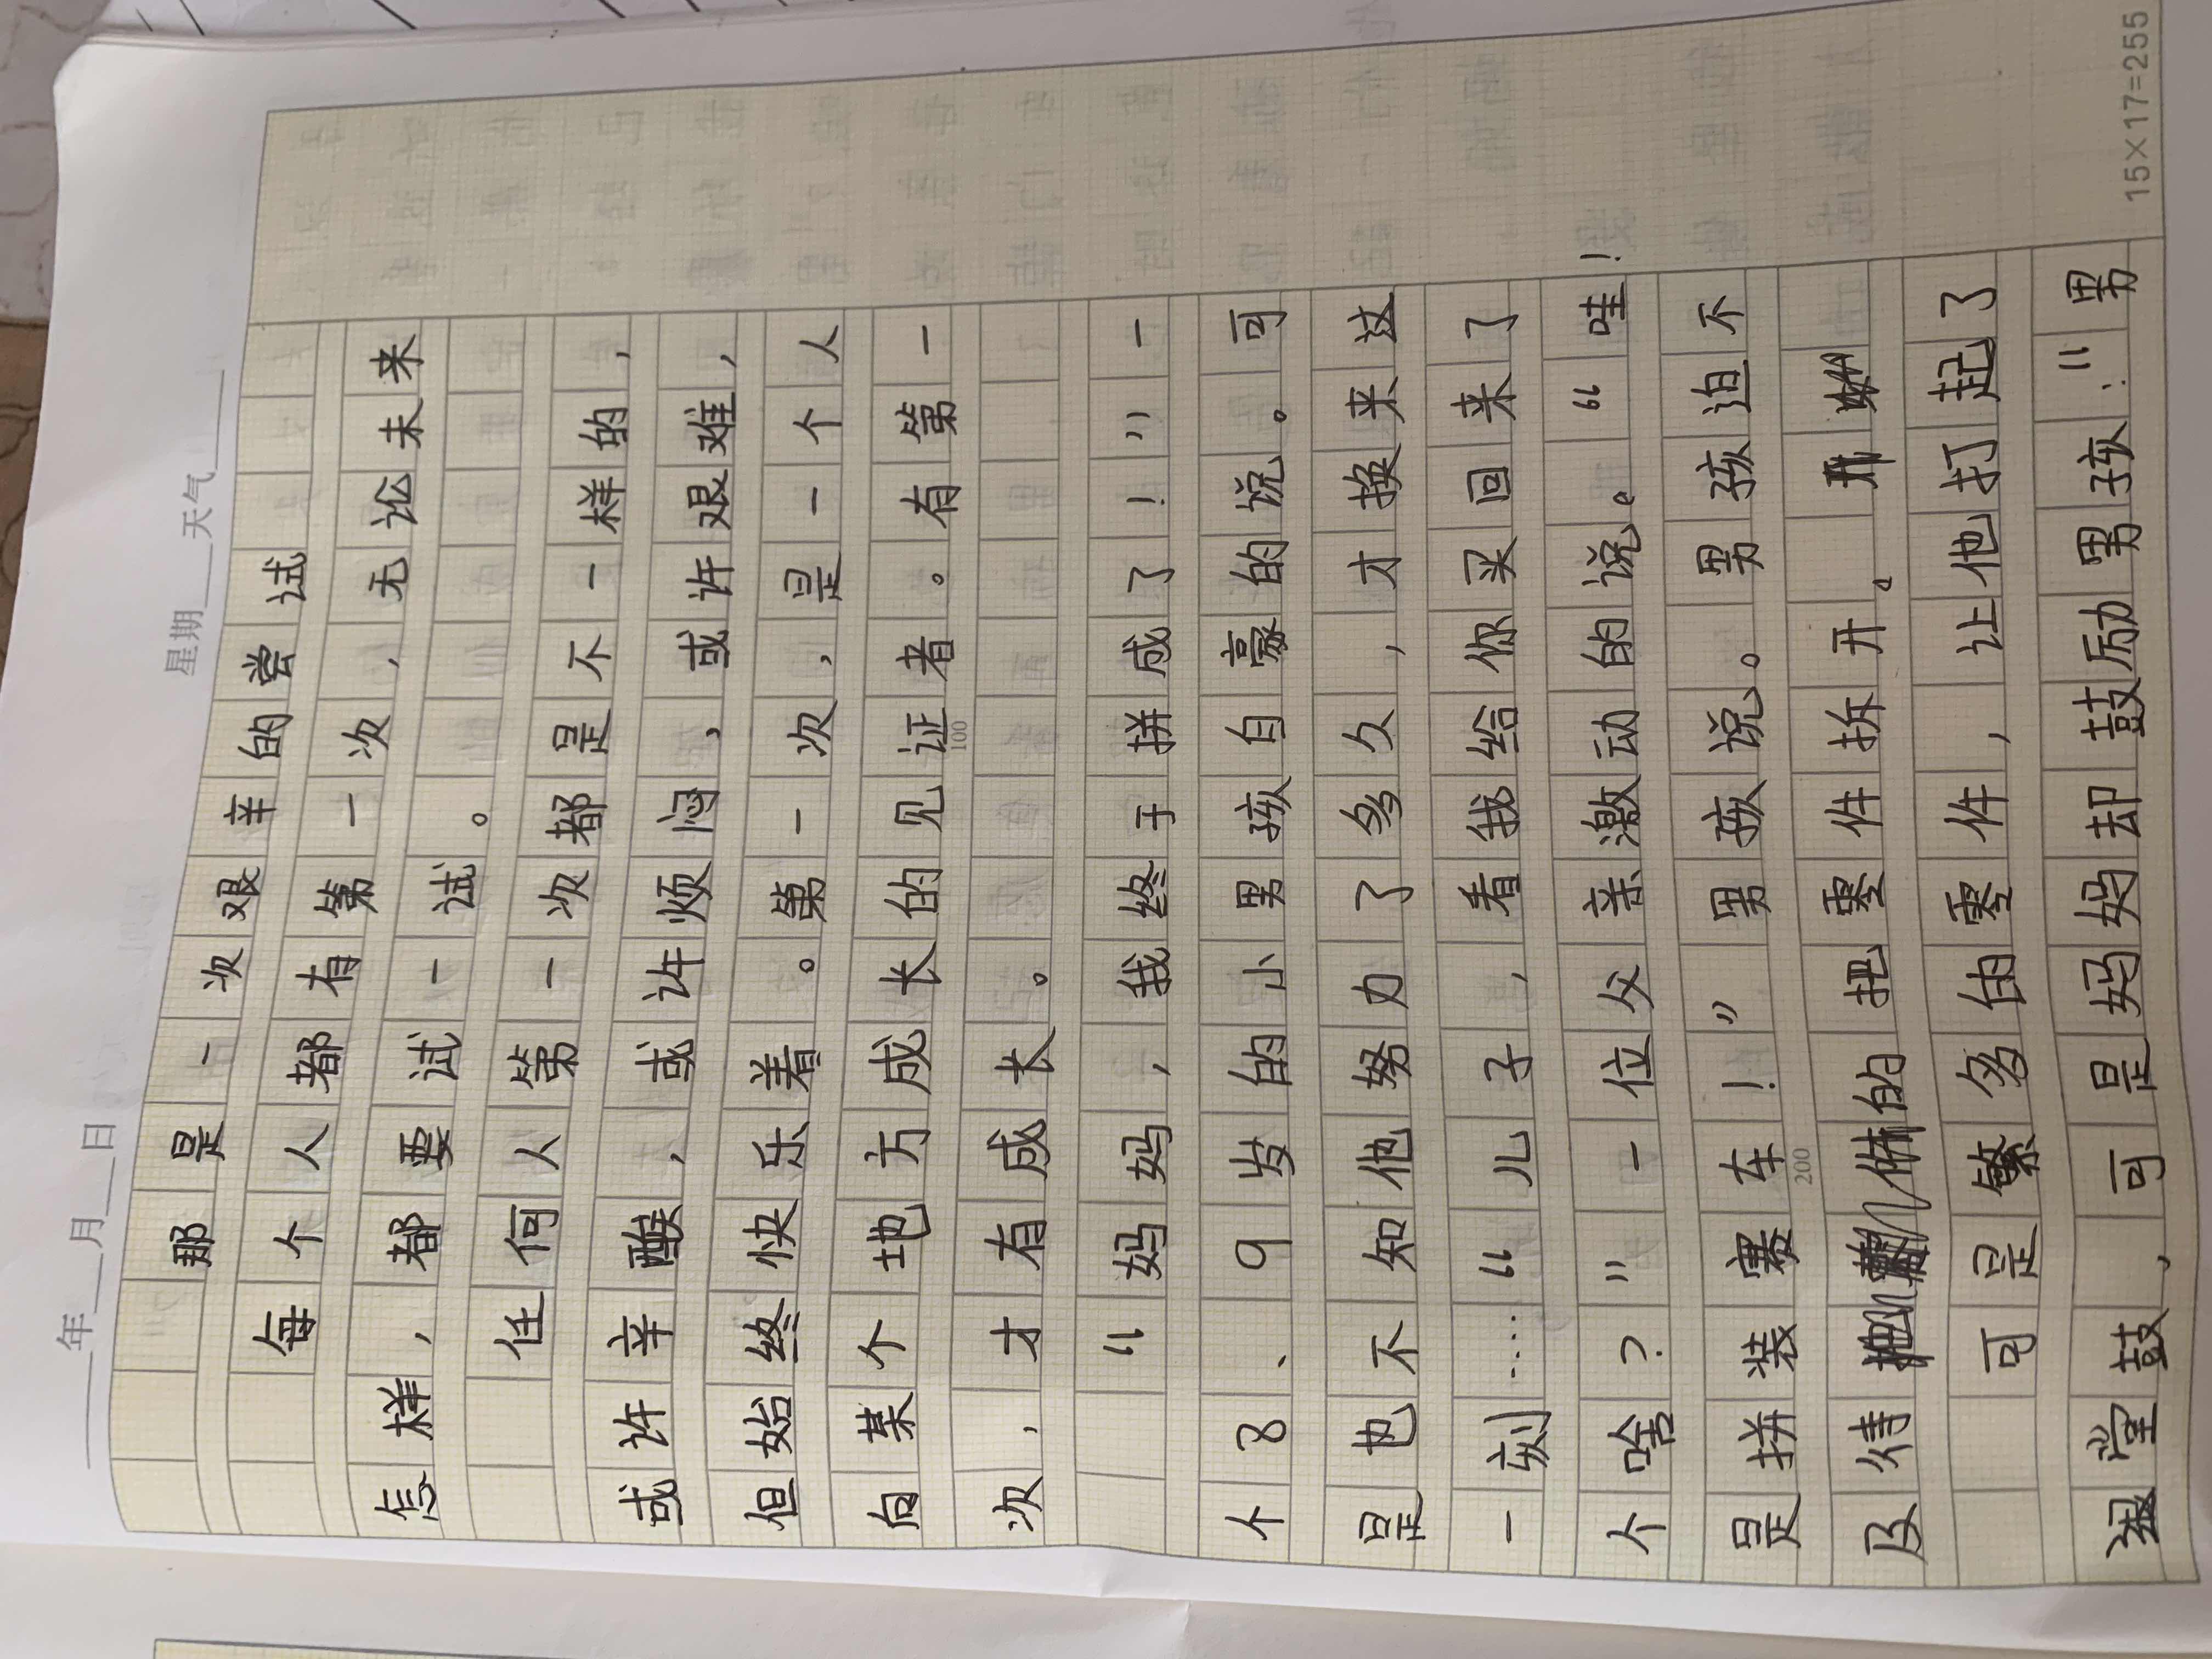 年 月 日 星期 天气
那是一次艰辛的尝试
每个人都有第一次，无论未来
怎样，都要试一试。
任何人第一次都是不一样的，
或许辛酸，或许烦闷，或许艰难，
但始终快乐着。第一次，是一个人
向某个地方成长的见证者。有第一
次，才有成长。
100
“妈妈，我终于拼成了！”一
个8、9岁的小男孩自豪的说。可
是也不知他努力了多久，才换来这
一刻……“儿子，看我给你买回来了
个啥？”一位父亲激动的说。“哇！
是拼装赛车！”男孩说。男孩迫不
200
及待的把零件拆开。
可是繁多的零件，让他打起了
退堂鼓，可是妈妈却鼓励男孩：“男
15×17=255